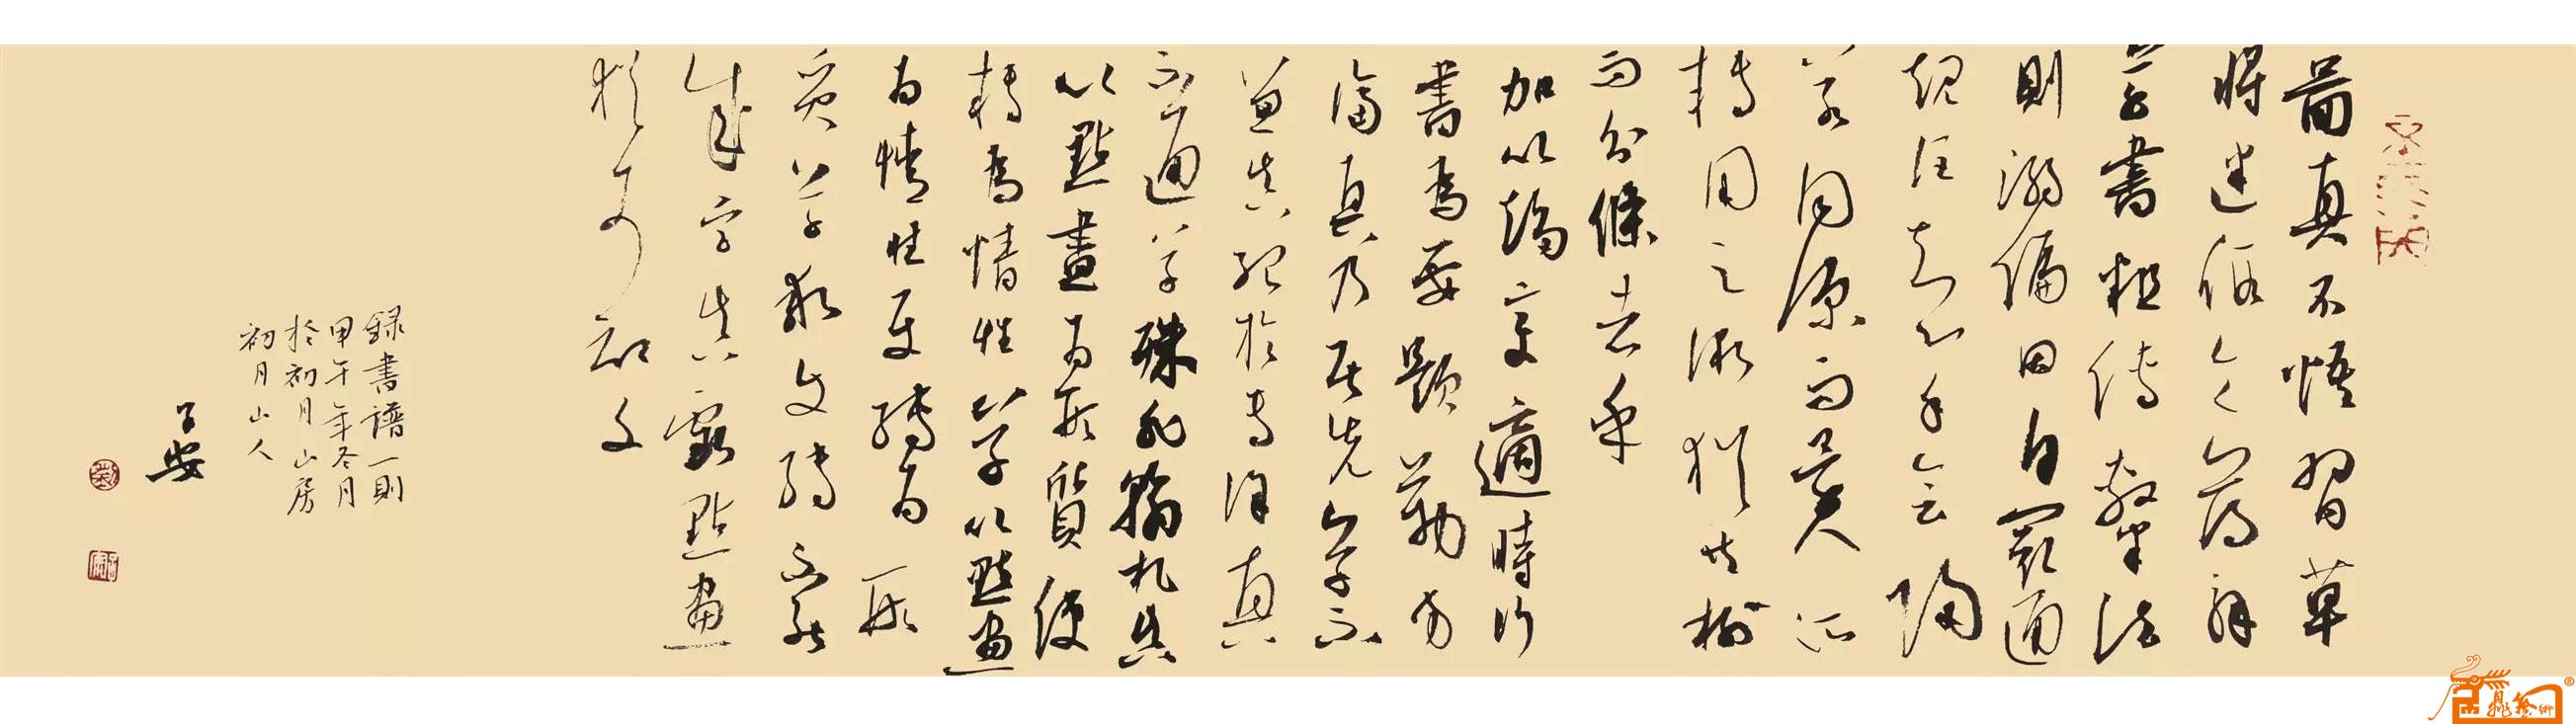 啚真不悟習草
將迷假令薄解
草書粗傳隸法
則溺偏固自閡通
規詎知心手會歸
若同源而異派
轉用之術猶共樹
而分條者乎
加以趨變適時行
書為要題勒方
幅真乃居先草不
兼真殆於專謹真
不通草殊非翰札真
以點畫為形質使
轉為情性草以點畫
為情性使轉為形
質草乖使轉不能
成字真虧點畫
猶可記文
錄書譜一則
甲午年冬月
於初月山房
初月山人
子安